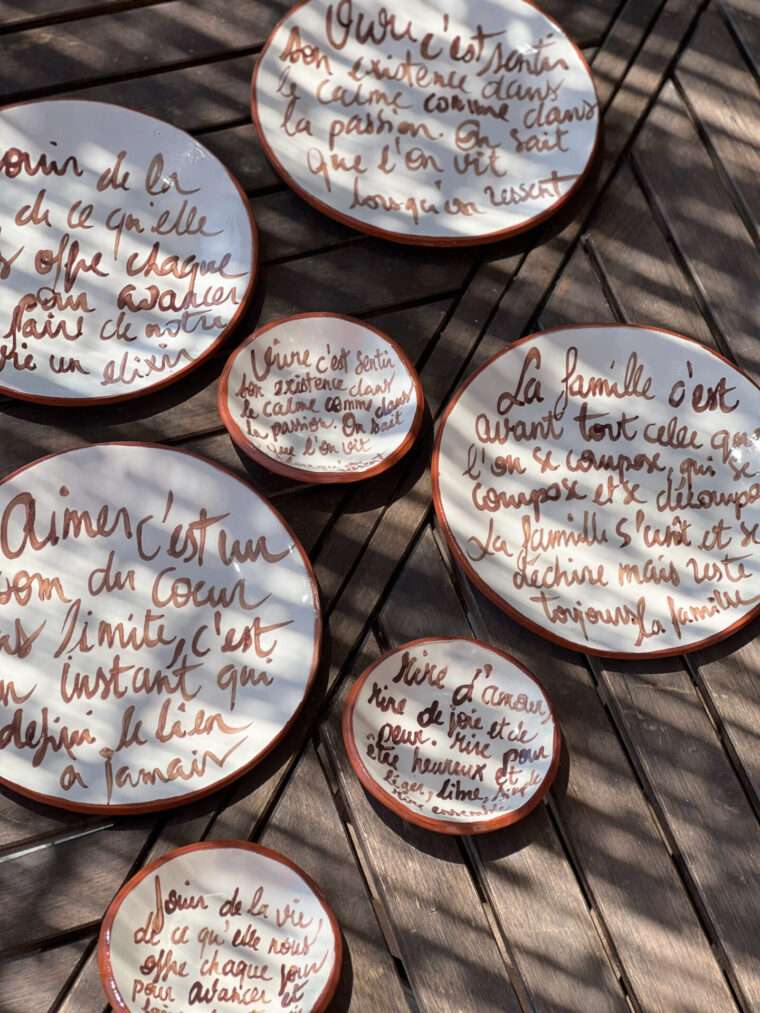 Vivre c'est sentir
son existence dans
le calme comme dans
la passion. On sait
que l'on vit
lorsqu'on ressent
ouir de la
de ce qu'elle
offre chaque
pour avancer
faire de notre
un elixir
Vivre c'est sentir
son existence dans
le calme comme dans
la passion. On sait
que l'on vit
La famille c'est
avant tout celle que
l'on se compose, qui se
compose et se décompo
La famille s'unit et se
déchire mais reste
toujours la famille
Aimer c'est un
du coeur
limite, c'est
instant qui
defini le lien
a jamais
Rire d'amour,
rire de joie et de
peur. Rire pour
être heureux et
léger, libre, simple
rire ensemble
Jouir de la vie
de ce qu'elle nous
offre chaque jour
pour avancer et